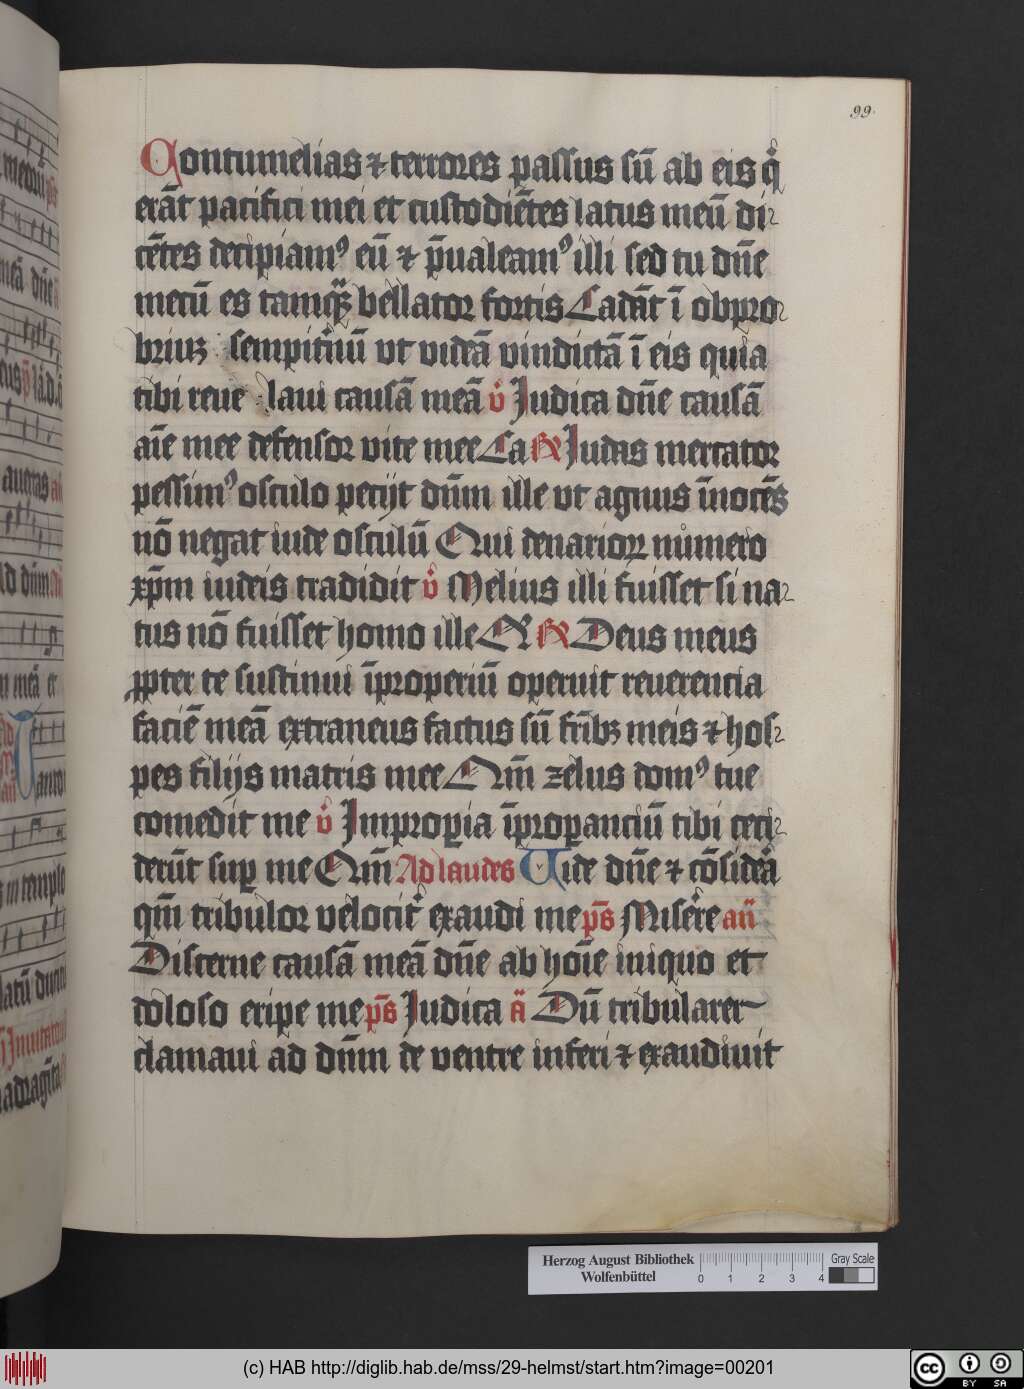 99.
Contumelias ⁊ terrores passus sū ab eis q̇
erāt pacifici mei et custodiētes latus meū di-
cētes decipiamꝰ eū ⁊ p̄ualeamꝰ illi sed tu dn̄e
mecū es tamqͣꝫ bellator fortis Cadāt ī obpro-
briuꝫ sempit̄nū vt videā vindictā ī eis quia
tibi reue laui causā meā v̊ Judica dn̄e causā
aīe mee defensor vite mee Ca ℞ Judas mercator
pessimꝰ osculo petijt dn̄m ille vt agnus īnocēs
nō negat iude osculū Qui denarioꝝ numero
xp̄m iudeis tradidit v̊ Melius illi fuisset si na-
tus nō fuisset homo ille Q ℞ Deus meus
ꝓpter te sustinui īproperiū operuit reuerencia
faciē meā extraneus factus sū fr̄ibꝫ meis ⁊ hos-
pes filijs matris mee Qm̄ zelus domꝰ tue
comedit me v̊ Impropꝑia īpropꝑanciū tibi ceci-
derūt suꝑ me Qm̄ Ad laudes Vide dn̄e ⁊ cōsiderā
qm̄ tribulor velocit̉ exaudi me ps̄ Misēre an̄
Discerne causā meā dn̄e ab hoīe iniquo et
doloso eripe me ps̄ Judica a᷒ Dū tribularer
clamaui ad dn̄m de ventre inferi ⁊ exaudiuit
Herzog August Bibliothek
Wolfenbüttel
0 1 2 3 4
Gray Scale
(c) HAB http://diglib.hab.de/mss/29-helmst/start.htm?image=00201
cc BY SA